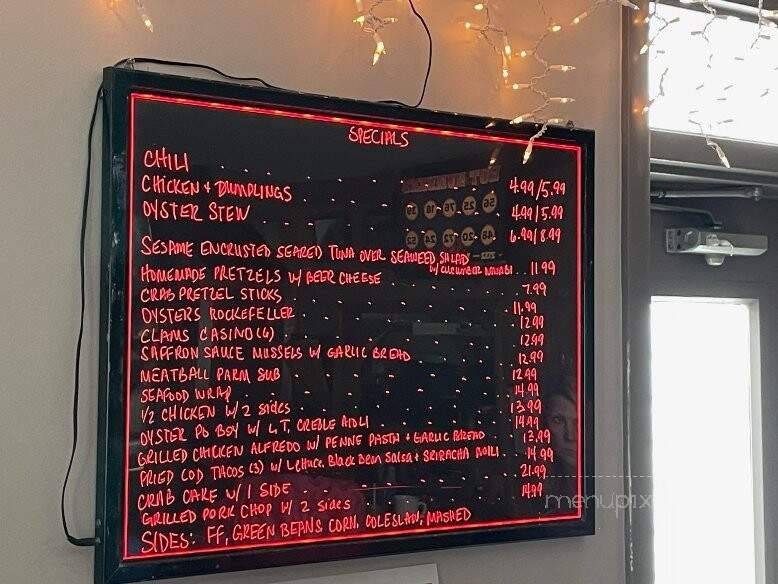 SPECIALS
CHILI 4.99/5.99
CHICKEN + DUMPLINGS 4.99/5.99
OYSTER STEW 6.99/8.99
SESAME ENCRUSTED SEARED TUNA OVER SEAWEED SALAD
W/ CUCUMBER WASABI 11.99
HOMEMADE PRETZELS W/ BEER CHEESE 7.99
CRAB PRETZEL STICKS 11.99
OYSTERS ROCKEFELLER 12.99
CLAMS CASINO (6) 12.99
SAFFRON SAUCE MUSSELS W/ GARLIC BREAD 12.99
MEATBALL PARM SUB 12.99
SEAFOOD WRAP 14.99
1/2 CHICKEN W/ 2 sides 13.99
OYSTER PO BOY W/ L, T, CREOLE AIOLI 14.99
GRILLED CHICKEN ALFREDO W/ PENNE PASTA + GARLIC BREAD 13.99
FRIED COD TACOS (3) W/ Lettuce, Black Bean Salsa + SRIRACHA AIOLI 14.99
CRAB CAKE W/ 1 SIDE 21.99
GRILLED PORK CHOP W/ 2 sides 14.99
SIDES: FF, GREEN BEANS CORN, COLESLAW, MASHED
menupix